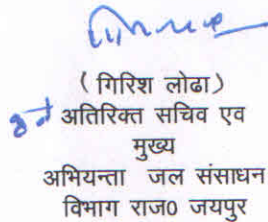 ( गिरिश लोढा)
अतिरिक्त सचिव एव
मुख्य
अभियन्ता जल संसाधन
विभाग राज0 जयपुर